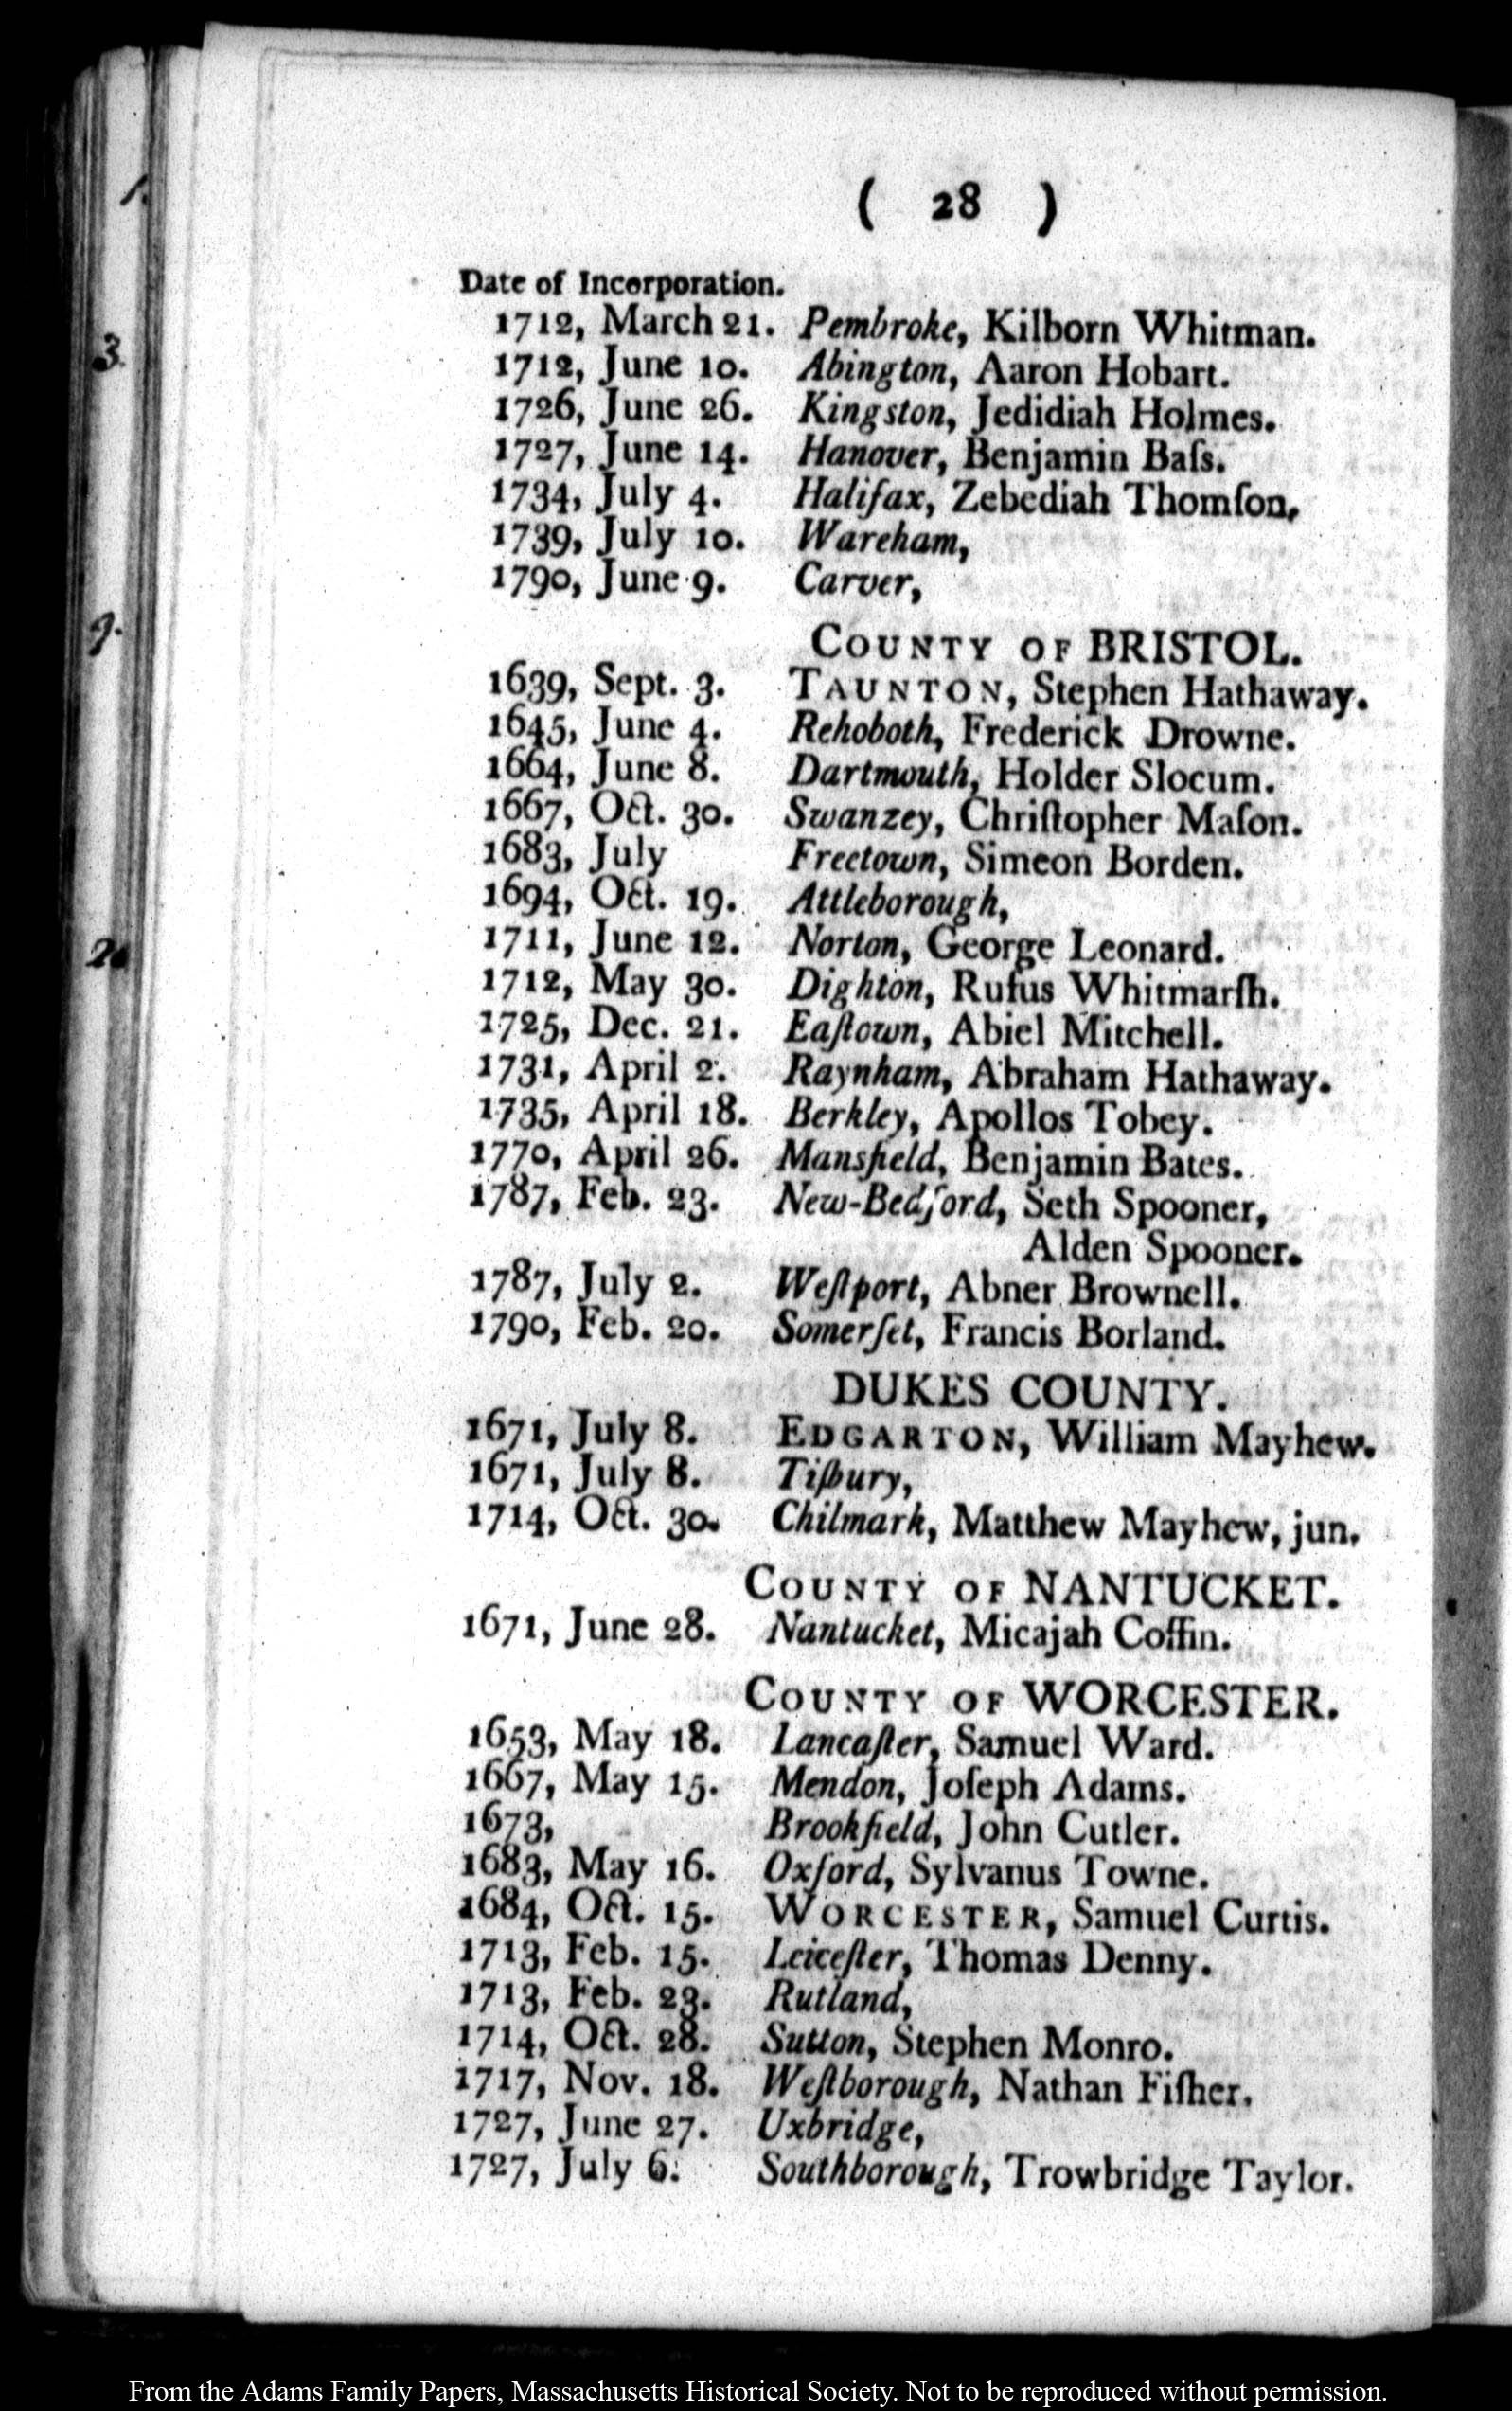 ( 28 )
Date of Incorporation.
1712, March 21. Pembroke, Kilborn Whitman.
1712, June 10. Abington, Aaron Hobart.
1726, June 26. Kingston, Jedidiah Holmes.
1727, June 14. Hanover, Benjamin Baſs.
1734, July 4. Halifax, Zebediah Thomſon,
1739, July 10. Wareham,
1790, June 9. Carver,
COUNTY OF BRISTOL.
1639, Sept. 3. TAUNTON, Stephen Hathaway.
1645, June 4. Rehoboth, Frederick Drowne.
1664, June 8. Dartmouth, Holder Slocum.
1667, Oct. 30. Swanzey, Chriſtopher Maſon.
1683, July Freetown, Simeon Borden.
1694, Oct. 19. Attleborough,
1711, June 12. Norton, George Leonard.
1712, May 30. Dighton, Rufus Whitmarſh.
1725, Dec. 21. Eaſtown, Abiel Mitchell.
1731, April 2. Raynham, Abraham Hathaway.
1735, April 18. Berkley, Apollos Tobey.
1770, April 26. Mansfield, Benjamin Bates.
1787, Feb. 23. New-Bedford, Seth Spooner,
Alden Spooner.
1787, July 2. Weſtport, Abner Brownell.
1790, Feb. 20. Somerſet, Francis Borland.
DUKES COUNTY.
1671, July 8. EDGARTON, William Mayhew.
1671, July 8. Tiſbury,
1714, Oct. 30. Chilmark, Matthew Mayhew, jun.
COUNTY OF NANTUCKET.
1671, June 28. Nantucket, Micajah Coffin.
COUNTY OF WORCESTER.
1653, May 18. Lancaſter, Samuel Ward.
1667, May 15. Mendon, Joſeph Adams.
1673, Brookfield, John Cutler.
1683, May 16. Oxford, Sylvanus Towne.
1684, Oct. 15. WORCESTER, Samuel Curtis.
1713, Feb. 15. Leiceſter, Thomas Denny.
1713, Feb. 23. Rutland,
1714, Oct. 28. Sutton, Stephen Monro.
1717, Nov. 18. Weſtborough, Nathan Fiſher.
1727, June 27. Uxbridge,
1727, July 6. Southborough, Trowbridge Taylor.
3
9.
From the Adams Family Papers, Massachusetts Historical Society. Not to be reproduced without permission.